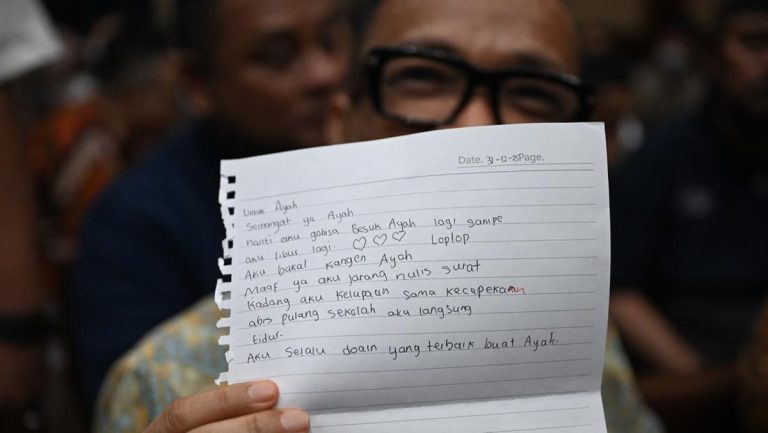 Date. 31-12-25 Page.
Untuk Ayah
Semangat ya Ayah
nanti aku gabisa Besuk Ayah lagi sampe
aku libur lagi ♡♡♡ Loplop
Aku bakal kangen Ayah
Maaf ya aku jarang nulis surat
Kadang aku kelupaan sama kecapekan
abis pulang sekolah aku langsung
tidur.
Aku selalu doain yang terbaik buat Ayah.